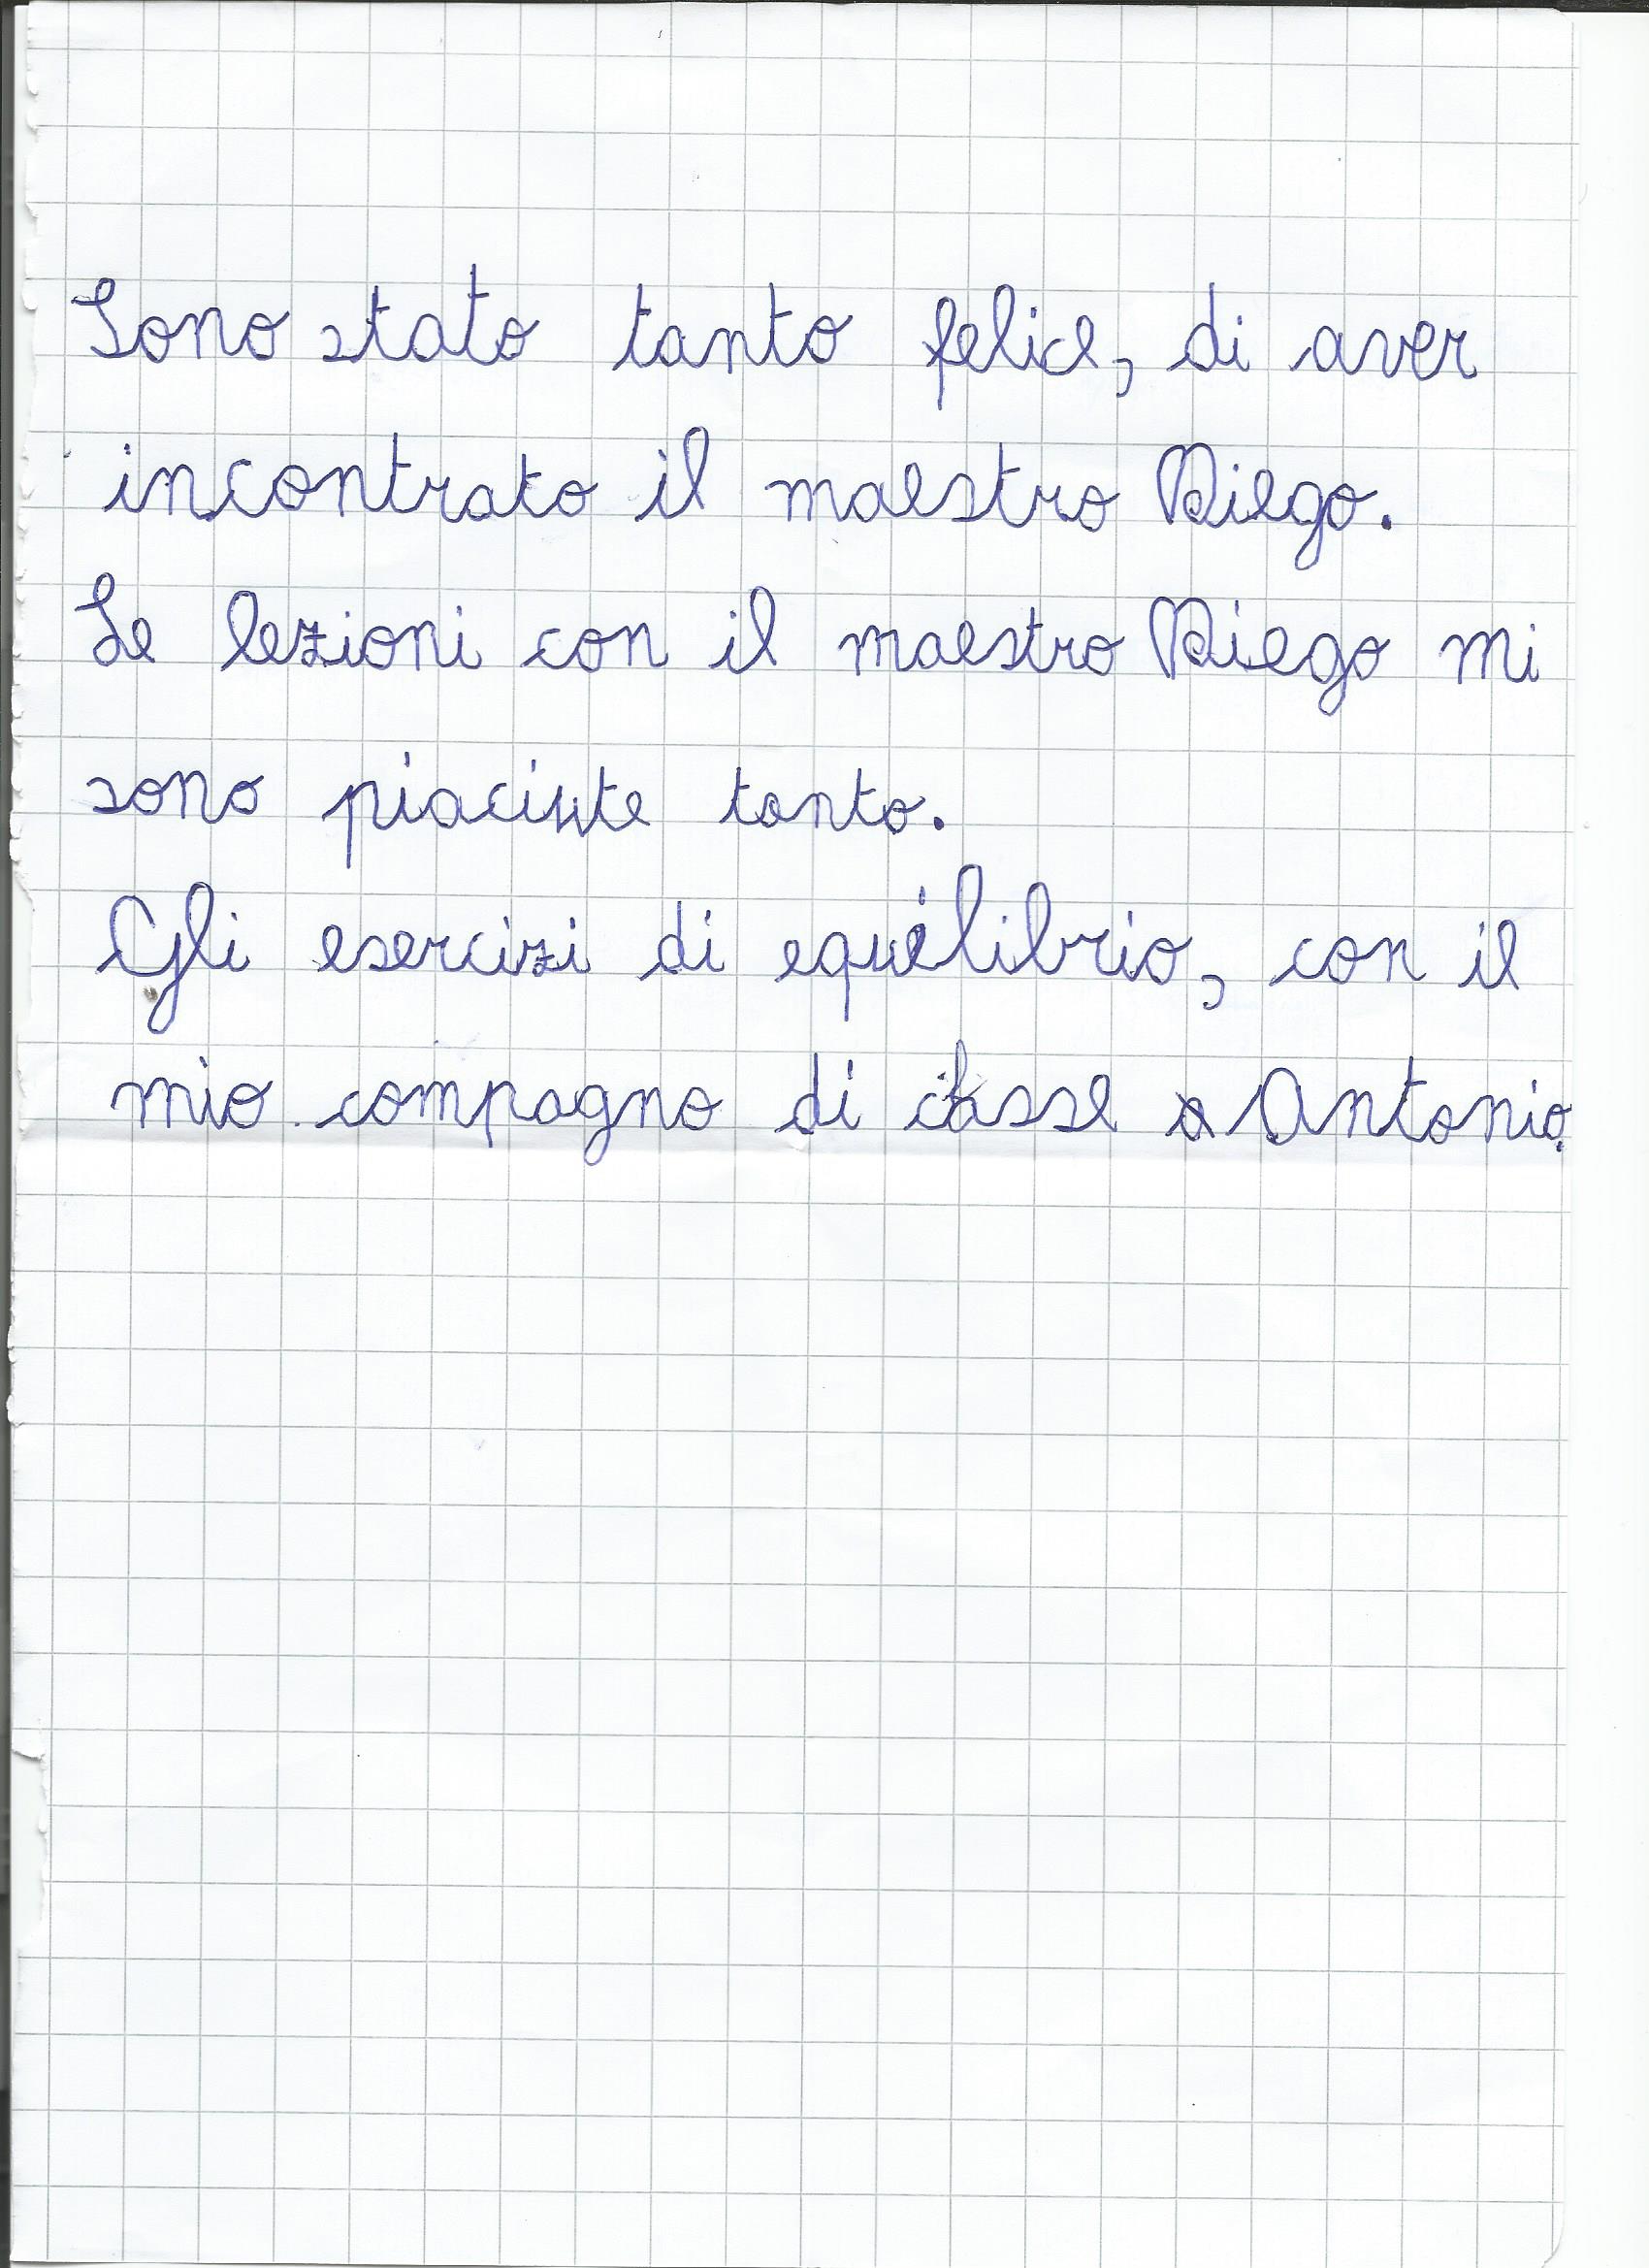 Sono stato tanto felice, di aver
incontrato il maestro Diego.
Le lezioni con il maestro Diego mi
sono piaciute tanto.
Gli esercizi di equilibrio, con il
mio compagno di classe Antonio.